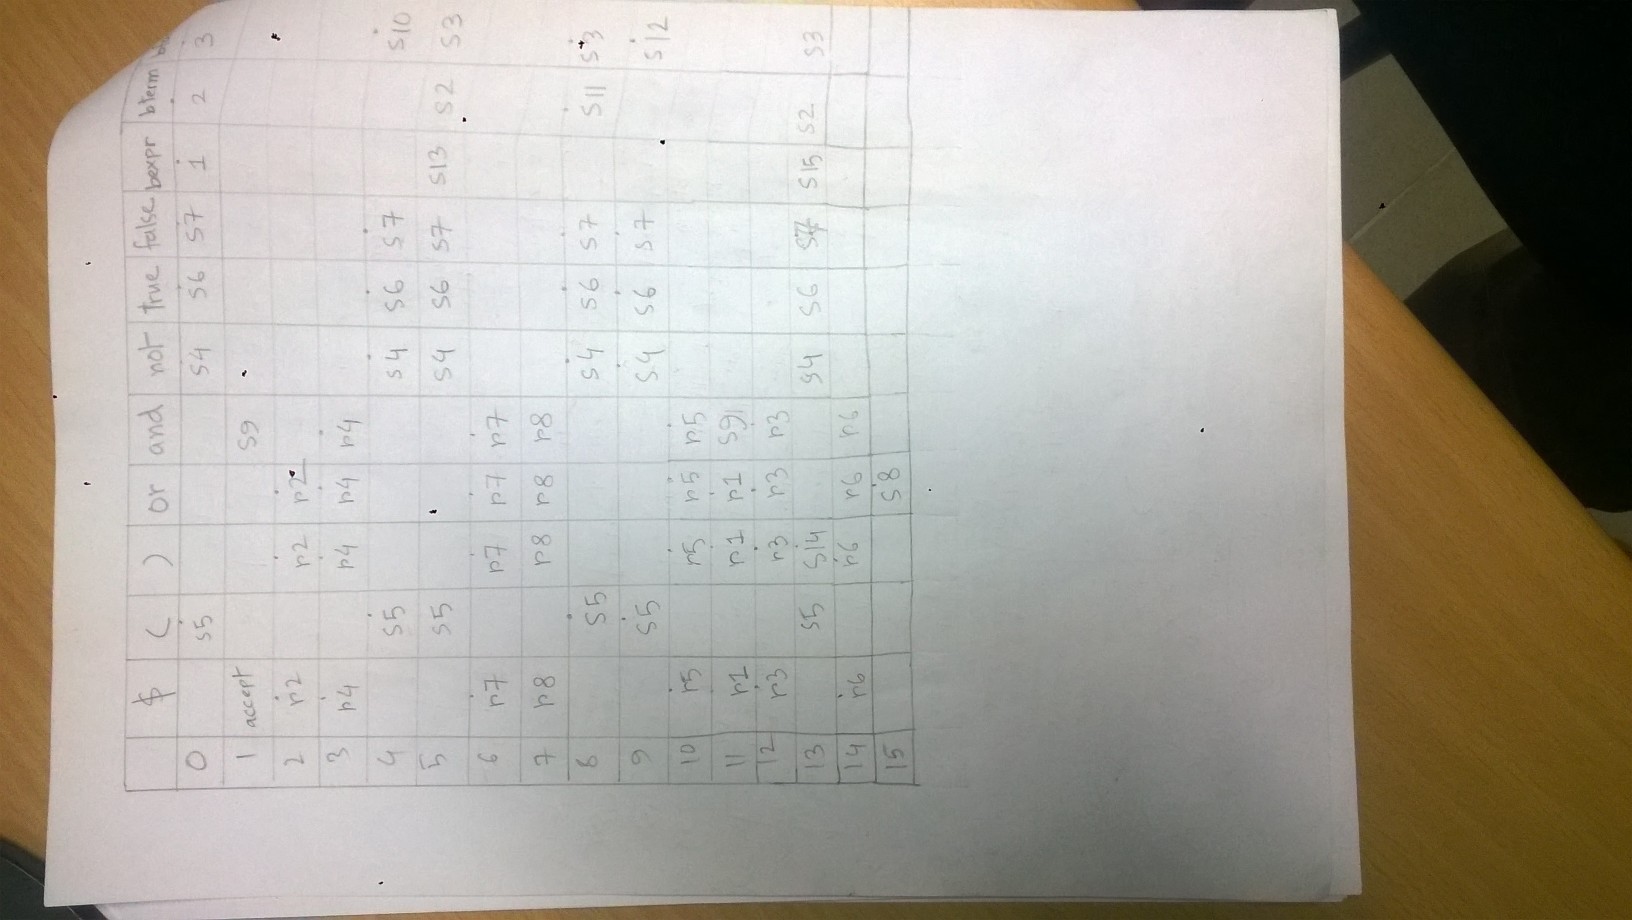 $ ( ) or and not true false bexpr bterm
0 s5 s4 s6 s7 1 2 3
1 accept s9
2 r2 r2 r2
3 r4 r4 r4 r4
4 s5 s4 s6 s7 s10
5 s5 s4 s6 s7 s13 s2 s3
6 r7 r7 r7 r7
7 r8 r8 r8 r8
8 s5 s4 s6 s7 s11 s3
9 s5 s4 s6 s7 s12
10 r5 r5 r5 r5
11 r1 r1 r1 s9
12 r3 r3 r3 r3
13 s5 s14 s4 s6 s7 s15 s2 s3
14 r6 r6 r6 r6
15 s8